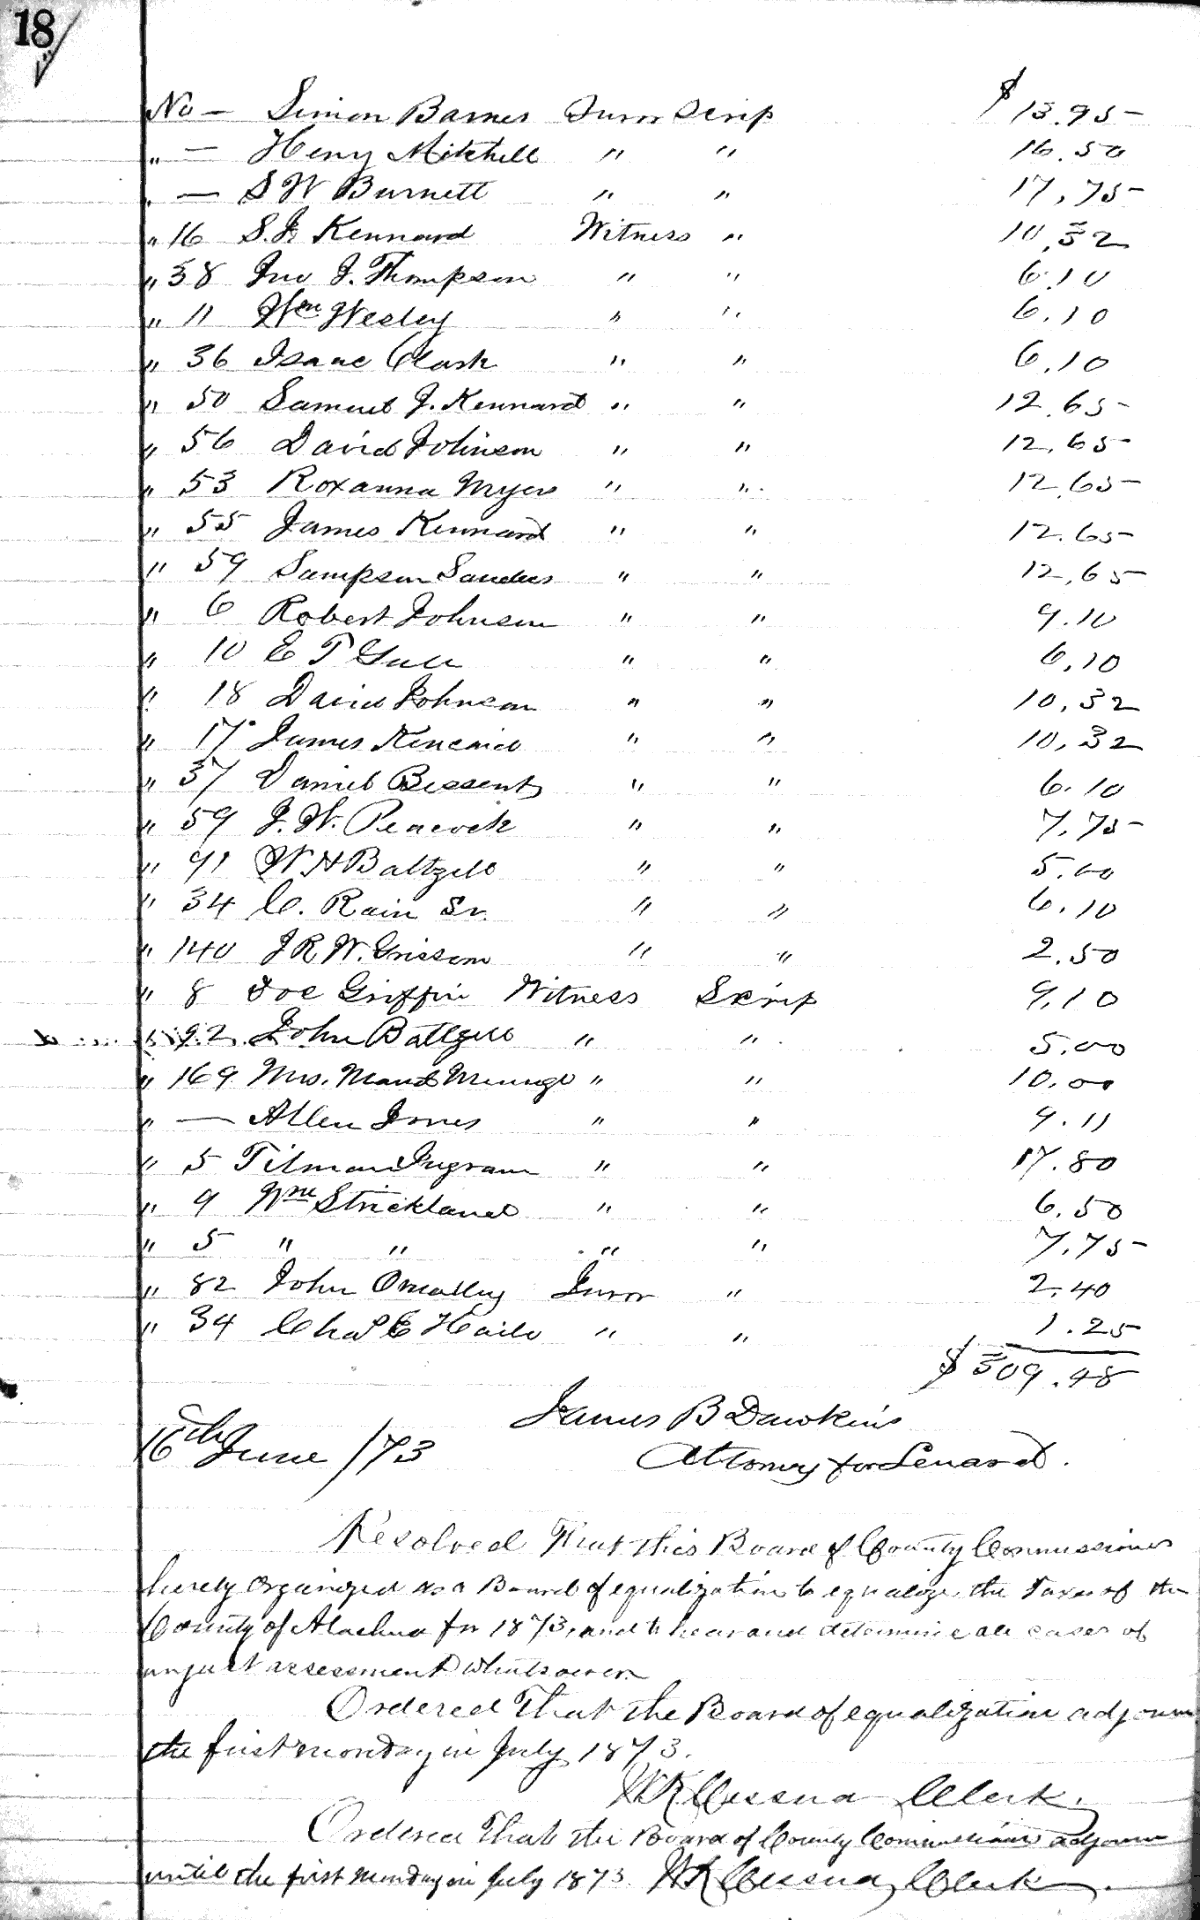 18
No — Simon Barnes Juror Scrip $13.95
" — Heny Mitchell " " 16.50
" — S W Burnett " " 17.75
" 16 S. J. Kennard Witness " 10.32
" 38 Jno J. Thompson " " 6.10
" 11 Wm Wesley " " 6.10
" 36 Isaac Clark " " 6.10
" 50 Samuel J. Kennard " " 12.65
" 56 David Johnson " " 12.65
" 53 Roxanna Myers " " 12.65
" 55 James Kennard " " 12.65
" 59 Sampson Sanders " " 12.65
" 6 Robert Johnson " " 9.10
" 10 E T " " 6.10
" 18 David Johnson " " 10.32
" 17 James Kincaid " " 10.32
" 37 Daniel Bessent " " 6.10
" 59 J. W. Peacock " " 7.75
" 91 W H Baltzell " " 5.00
" 34 C. Rain Sr. " " 6.10
" 140 J R W. Grissom " " 2.50
" 8 Joe Griffin Witness Scrip 9.10
" 92 John Baltzell " " 5.00
" 169 Mrs. " " 10.00
" — Allen Jones " " 9.11
" 5 Tilman Ingram " " 17.80
" 9 Wm Strickland " " 6.50
" 5 " " " " 7.75
" 82 John Omalley Juror " 2.40
" 34 Chas E Haile " " 1.25
$309.48
James B Dawkins
16th June /73 Attorney for Lenard.
Resolved That this Board of County Commissioners
hereby organized as a Board of equalization to equalize the Taxes of the
County of Alachua for 1873, and to hear and determine all cases of
unjust assessment whatsoever
Ordered That the Board of equalization adjourn
the first monday in July 1873.
W K Cessna Clerk.
Ordered That the Board of County Commissioners adjourn
until the first Monday in July 1873. W K Cessna, Clerk.